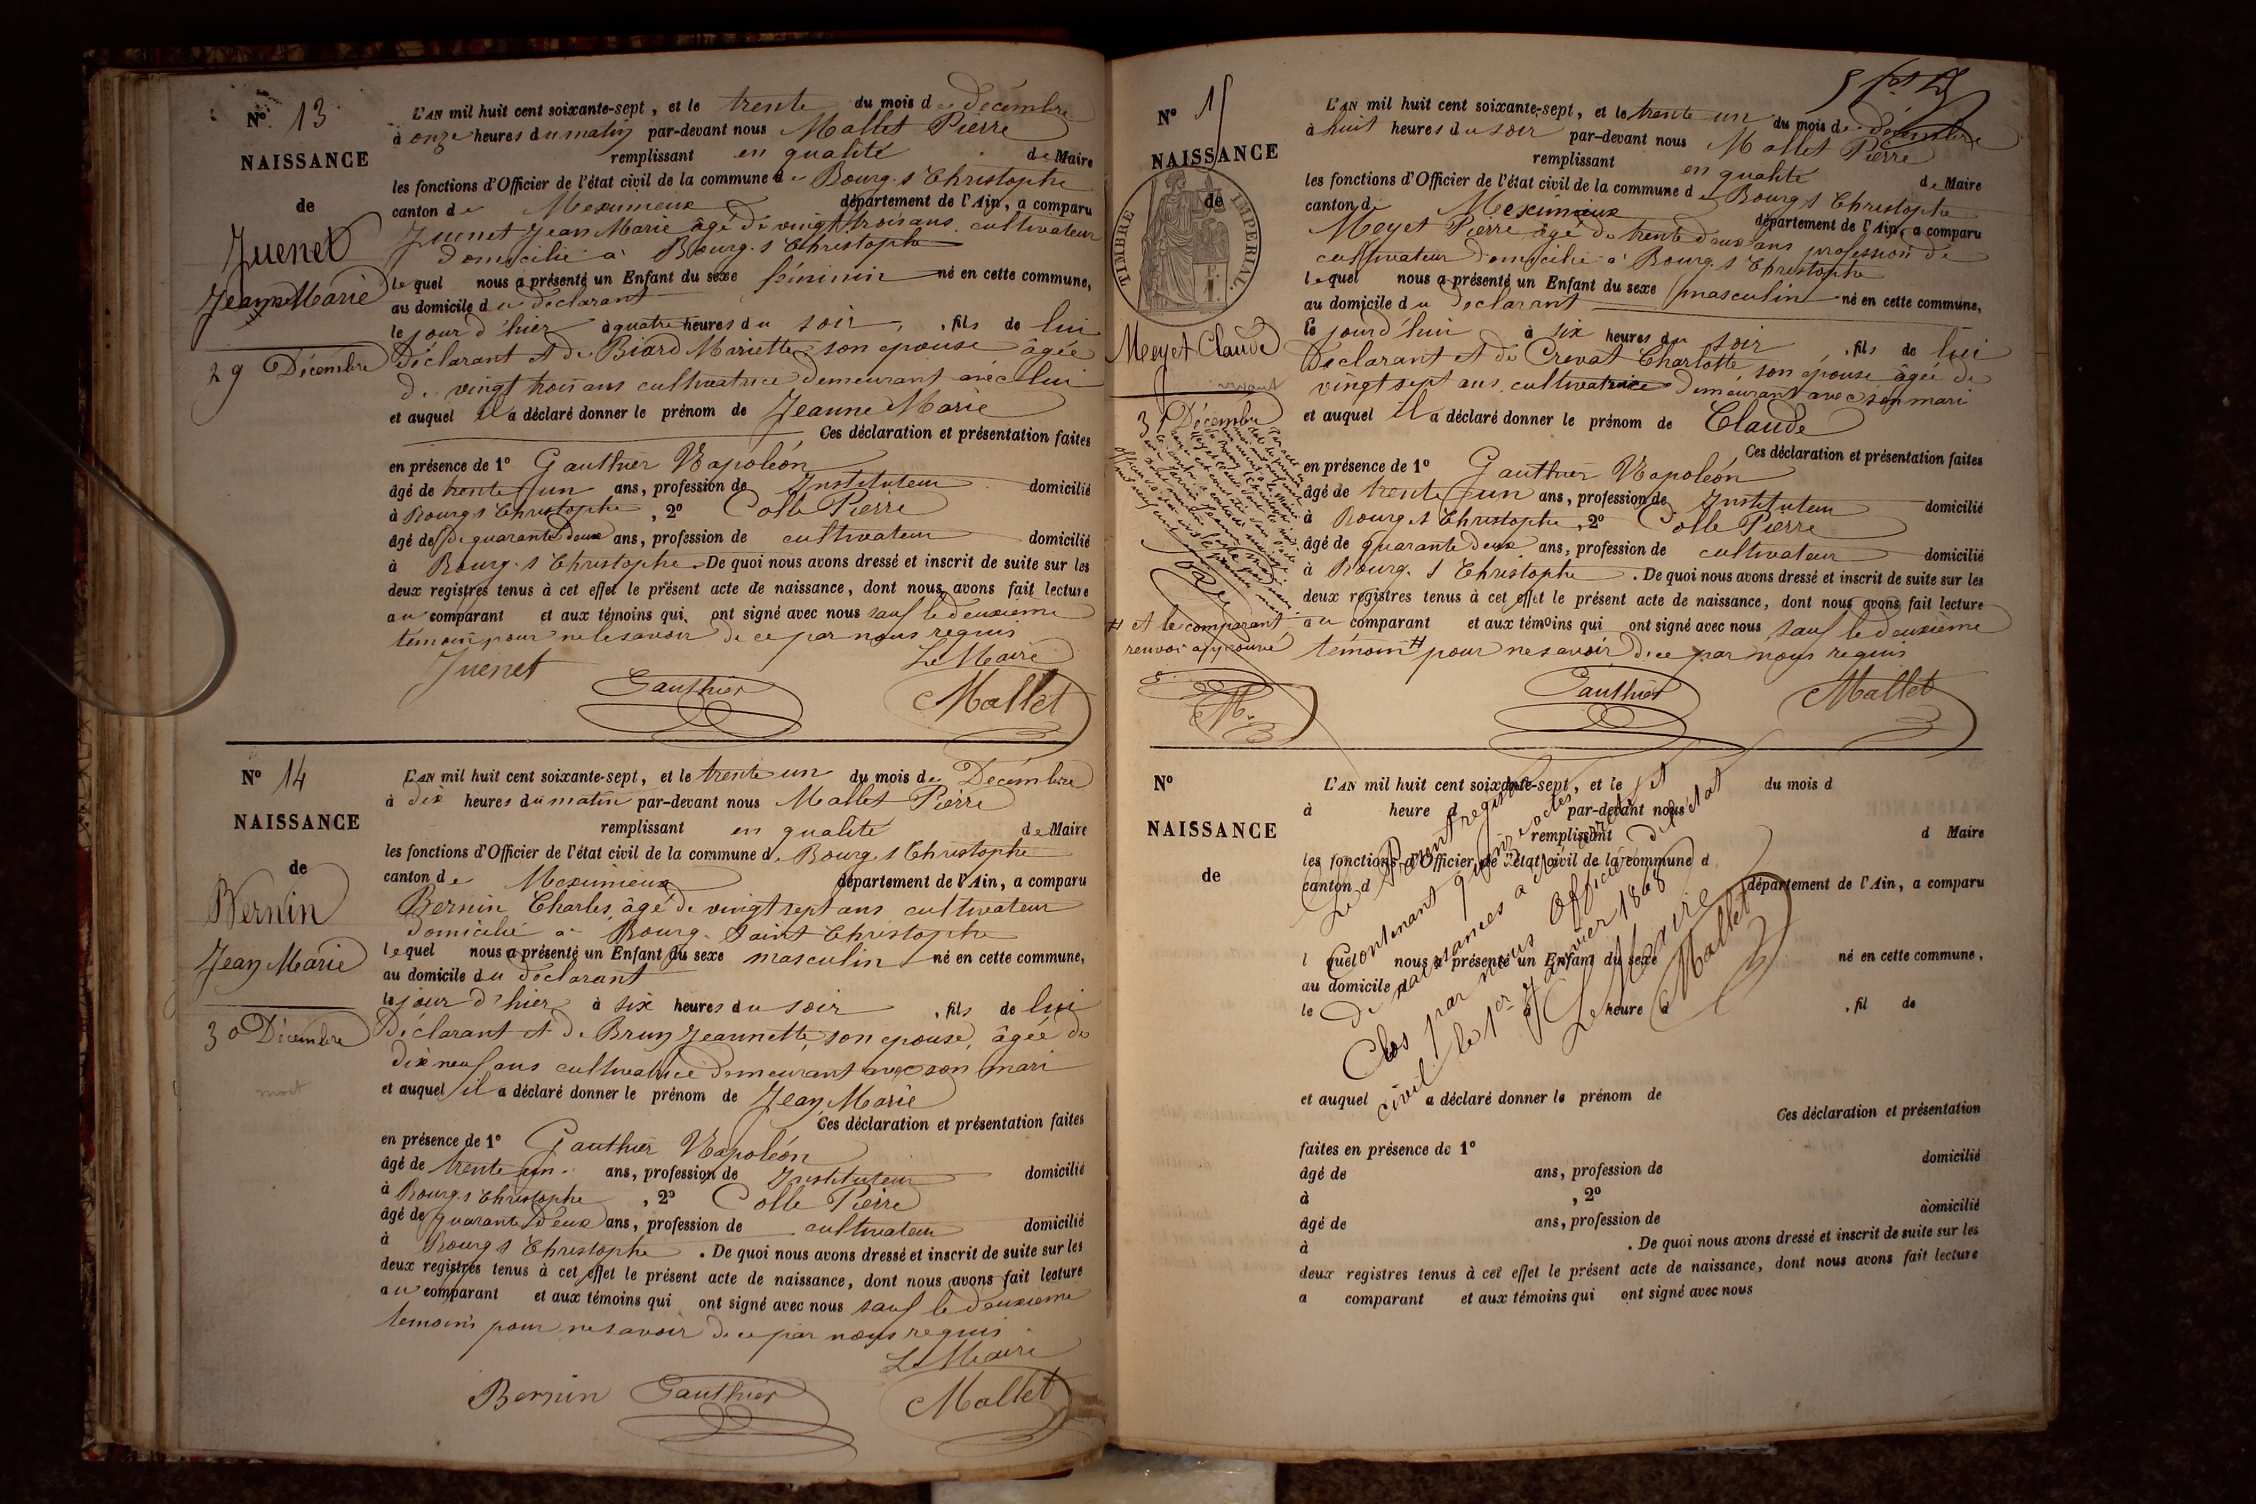 N° 13
NAISSANCE
de
Juenet
Jeanne Marie
29 Décembre
L'AN mil huit cent soixante-sept, et le trente du mois de décembre
à onze heures du matin par-devant nous Mallet Pierre
remplissant en qualité de Maire
les fonctions d'Officier de l'état civil de la commune de Bourg St Christophe
canton de Meximieux département de l'Ain, a comparu
Juenet Jean Marie âgé de vingt trois ans cultivateur
domicilié à Bourg St Christophe
lequel nous a présenté un Enfant du sexe féminin né en cette commune,
au domicile du déclarant
le jour d'hier à quatre heures du soir, fils de lui
déclarant et de Biard Mariette son épouse âgée
de vingt trois ans cultivatrice demeurant avec lui
et auquel il a déclaré donner le prénom de Jeanne Marie
Ces déclaration et présentation faites
en présence de 1° Gauthier Napoléon
âgé de trente un ans, profession de Instituteur domicilié
à Bourg St Christophe, 2° Colle Pierre
âgé de quarante deux ans, profession de cultivateur domicilié
à Bourg St Christophe. De quoi nous avons dressé et inscrit de suite sur les
deux registres tenus à cet effet le présent acte de naissance, dont nous avons fait lecture
au comparant et aux témoins qui ont signé avec nous sauf le deuxième
témoin pour ne le savoir de ce par nous requis
Le Maire
Juenet Gauthier Mallet
N° 14
NAISSANCE
de
Bernin
Jean Marie
30 Décembre
mort
L'AN mil huit cent soixante-sept, et le trente un du mois de Décembre
à dix heures du matin par-devant nous Mallet Pierre
remplissant en qualité de Maire
les fonctions d'Officier de l'état civil de la commune de Bourg St Christophe
canton de Meximieux département de l'Ain, a comparu
Bernin Charles, âgé de vingt sept ans cultivateur
domicilié à Bourg Saint Christophe
lequel nous a présenté un Enfant du sexe masculin né en cette commune,
au domicile du déclarant
le jour d'hier à six heures du soir, fils de lui
déclarant et de Brun Jeannette, son épouse, âgée de
dix neuf ans cultivatrice demeurant avec son mari
et auquel il a déclaré donner le prénom de Jean Marie
Ces déclaration et présentation faites
en présence de 1° Gauthier Napoléon
âgé de trente un ans, profession de Instituteur domicilié
à Bourg St Christophe, 2° Colle Pierre
âgé de quarante deux ans, profession de cultivateur domicilié
à Bourg St Christophe. De quoi nous avons dressé et inscrit de suite sur les
deux registres tenus à cet effet le présent acte de naissance, dont nous avons fait lecture
au comparant et aux témoins qui ont signé avec nous sauf le deuxième
témoins pour ne savoir de ce par nous requis
Le Maire
Bernin Gauthier Mallet
N° 15
NAISSANCE
de
TIMBRE IMPERIAL
Meyet Claude
vivant
31 Décembre
# et le comparant
renvoi approuvé
L'AN mil huit cent soixante-sept, et le trente un du mois de décembre
à huit heures du soir par-devant nous Mallet Pierre
remplissant en qualité de Maire
les fonctions d'Officier de l'état civil de la commune de Bourg St Christophe
canton de Meximieux département de l'Ain, a comparu
Meyet Pierre âgé de trente deux ans profession de
cultivateur domicilié à Bourg St Christophe
lequel nous a présenté un Enfant du sexe masculin né en cette commune,
au domicile du déclarant
le jourd'hui à six heures du soir, fils de lui
déclarant et de Crevat Charlotte son épouse âgée de
vingt sept ans cultivatrice demeurant avec son mari
et auquel il a déclaré donner le prénom de Claude
Ces déclaration et présentation faites
en présence de 1° Gauthier Napoléon
âgé de trente un ans, profession de Instituteur domicilié
à Bourg St Christophe, 2° Colle Pierre
âgé de quarante deux ans, profession de cultivateur domicilié
à Bourg St Christophe. De quoi nous avons dressé et inscrit de suite sur les
deux registres tenus à cet effet le présent acte de naissance, dont nous avons fait lecture
au comparant et aux témoins qui ont signé avec nous sauf le deuxième
témoin # pour ne savoir de ce par nous requis
Gauthier Mallet
N°
NAISSANCE
de
L'AN mil huit cent soixante-sept, et le du mois d
à heure d par-devant nous
remplissant d Maire
les fonctions d'Officier de l'état civil de la commune d
canton d département de l'Ain, a comparu
l quel nous a présenté un Enfant du sexe né en cette commune,
au domicile d
le à heure d, fil de
et auquel a déclaré donner le prénom de
Ces déclaration et présentation
faites en présence de 1°
âgé de ans, profession de domicilié
à , 2°
âgé de ans, profession de domicilié
à . De quoi nous avons dressé et inscrit de suite sur les
deux registres tenus à cet effet le présent acte de naissance, dont nous avons fait lecture
a comparant et aux témoins qui ont signé avec nous
Le Présent registre
contenant quinze actes
de naissances a été
Clos par nous Officier de l'état
civil le 1er Janvier 1868
Le Maire
Mallet